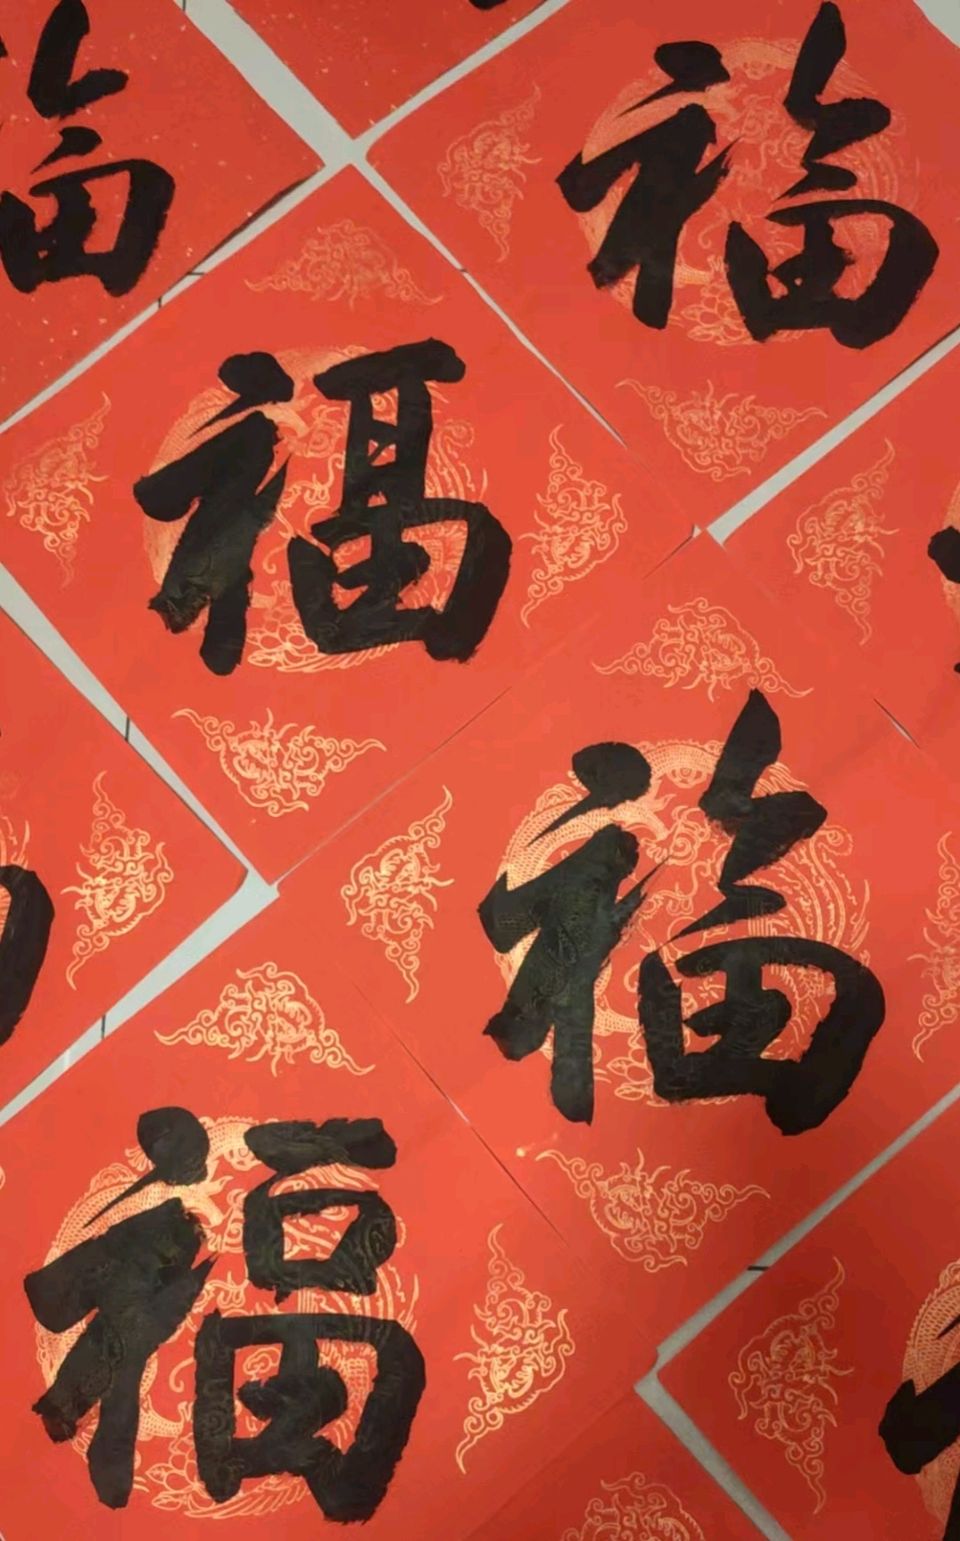 福
福
福
福
福